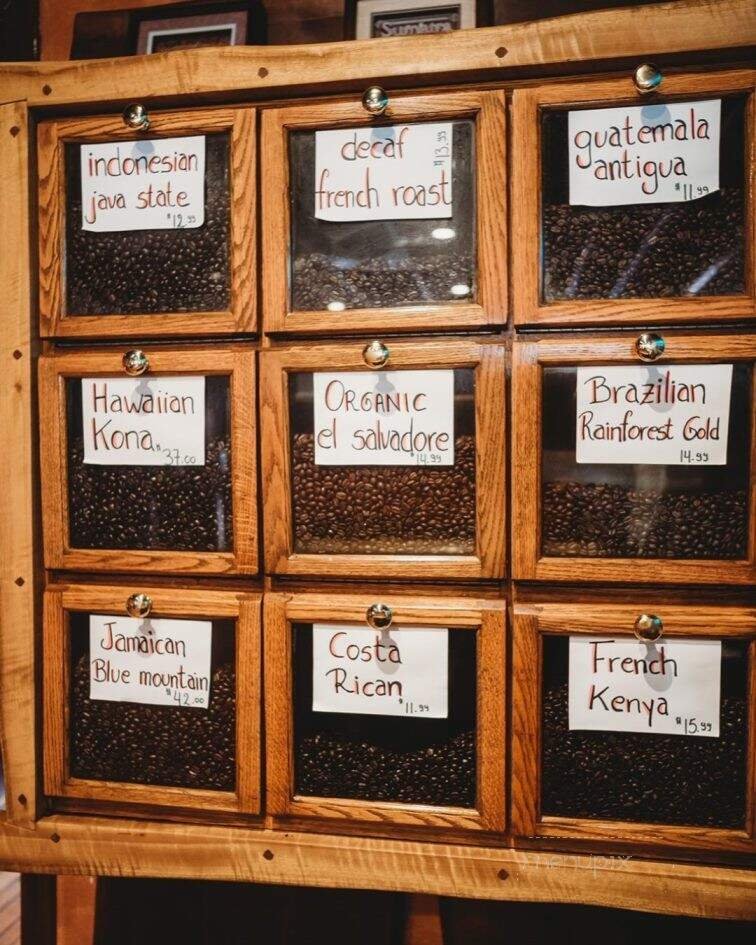 Sumatra
indonesian
java state
$12.99
decaf
french roast
$13.99
guatemala
antigua
$11.99
Hawaiian
Kona $37.00
ORGANIC
el salvadore
$14.99
Brazilian
Rainforest Gold
14.99
Jamaican
Blue mountain
$42.00
Costa
Rican
$11.99
French
Kenya
$15.99
menupix